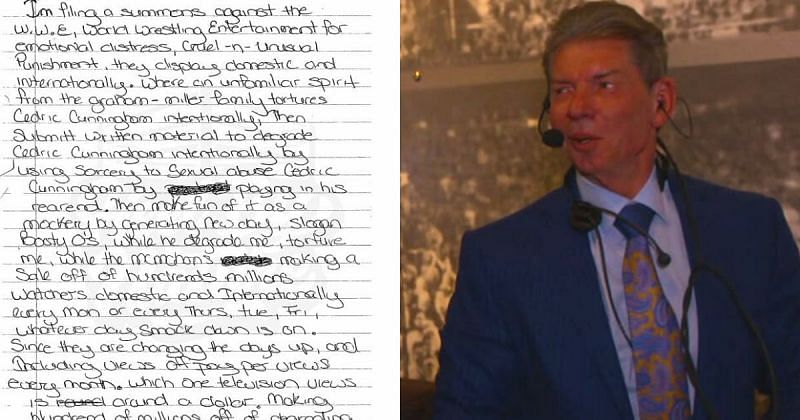 I'm filing a summons against the
W.W.E, World Wrestling Entertainment for
emotional distress, Cruel-n-unusual
Punishment. they display domestic and
internationally. Where an unfamiliar spirit
from the graham-miller family tortures
Cedric Cunningham intentionally, Then
Submitt written material to degrade
Cedric Cunningham intentionally by
using Sorcery to Sexual abuse Cedric
Cunningham by playing in his
rearend. Then make fun of it as a
mockery by generating new day, Slogan
Booty O's, while he degrade me, torture
me, while the mcmahon's making a
Sale off of hundrends millions
watchers domestic and Internationally
every mon or every Thurs, tue, Fri,
whatever day Smack down is on.
Since they are changing the days up, and
Including views off pay per views
every month. which one television views
is around a dollar. Making
hundrend of millions off of degrading